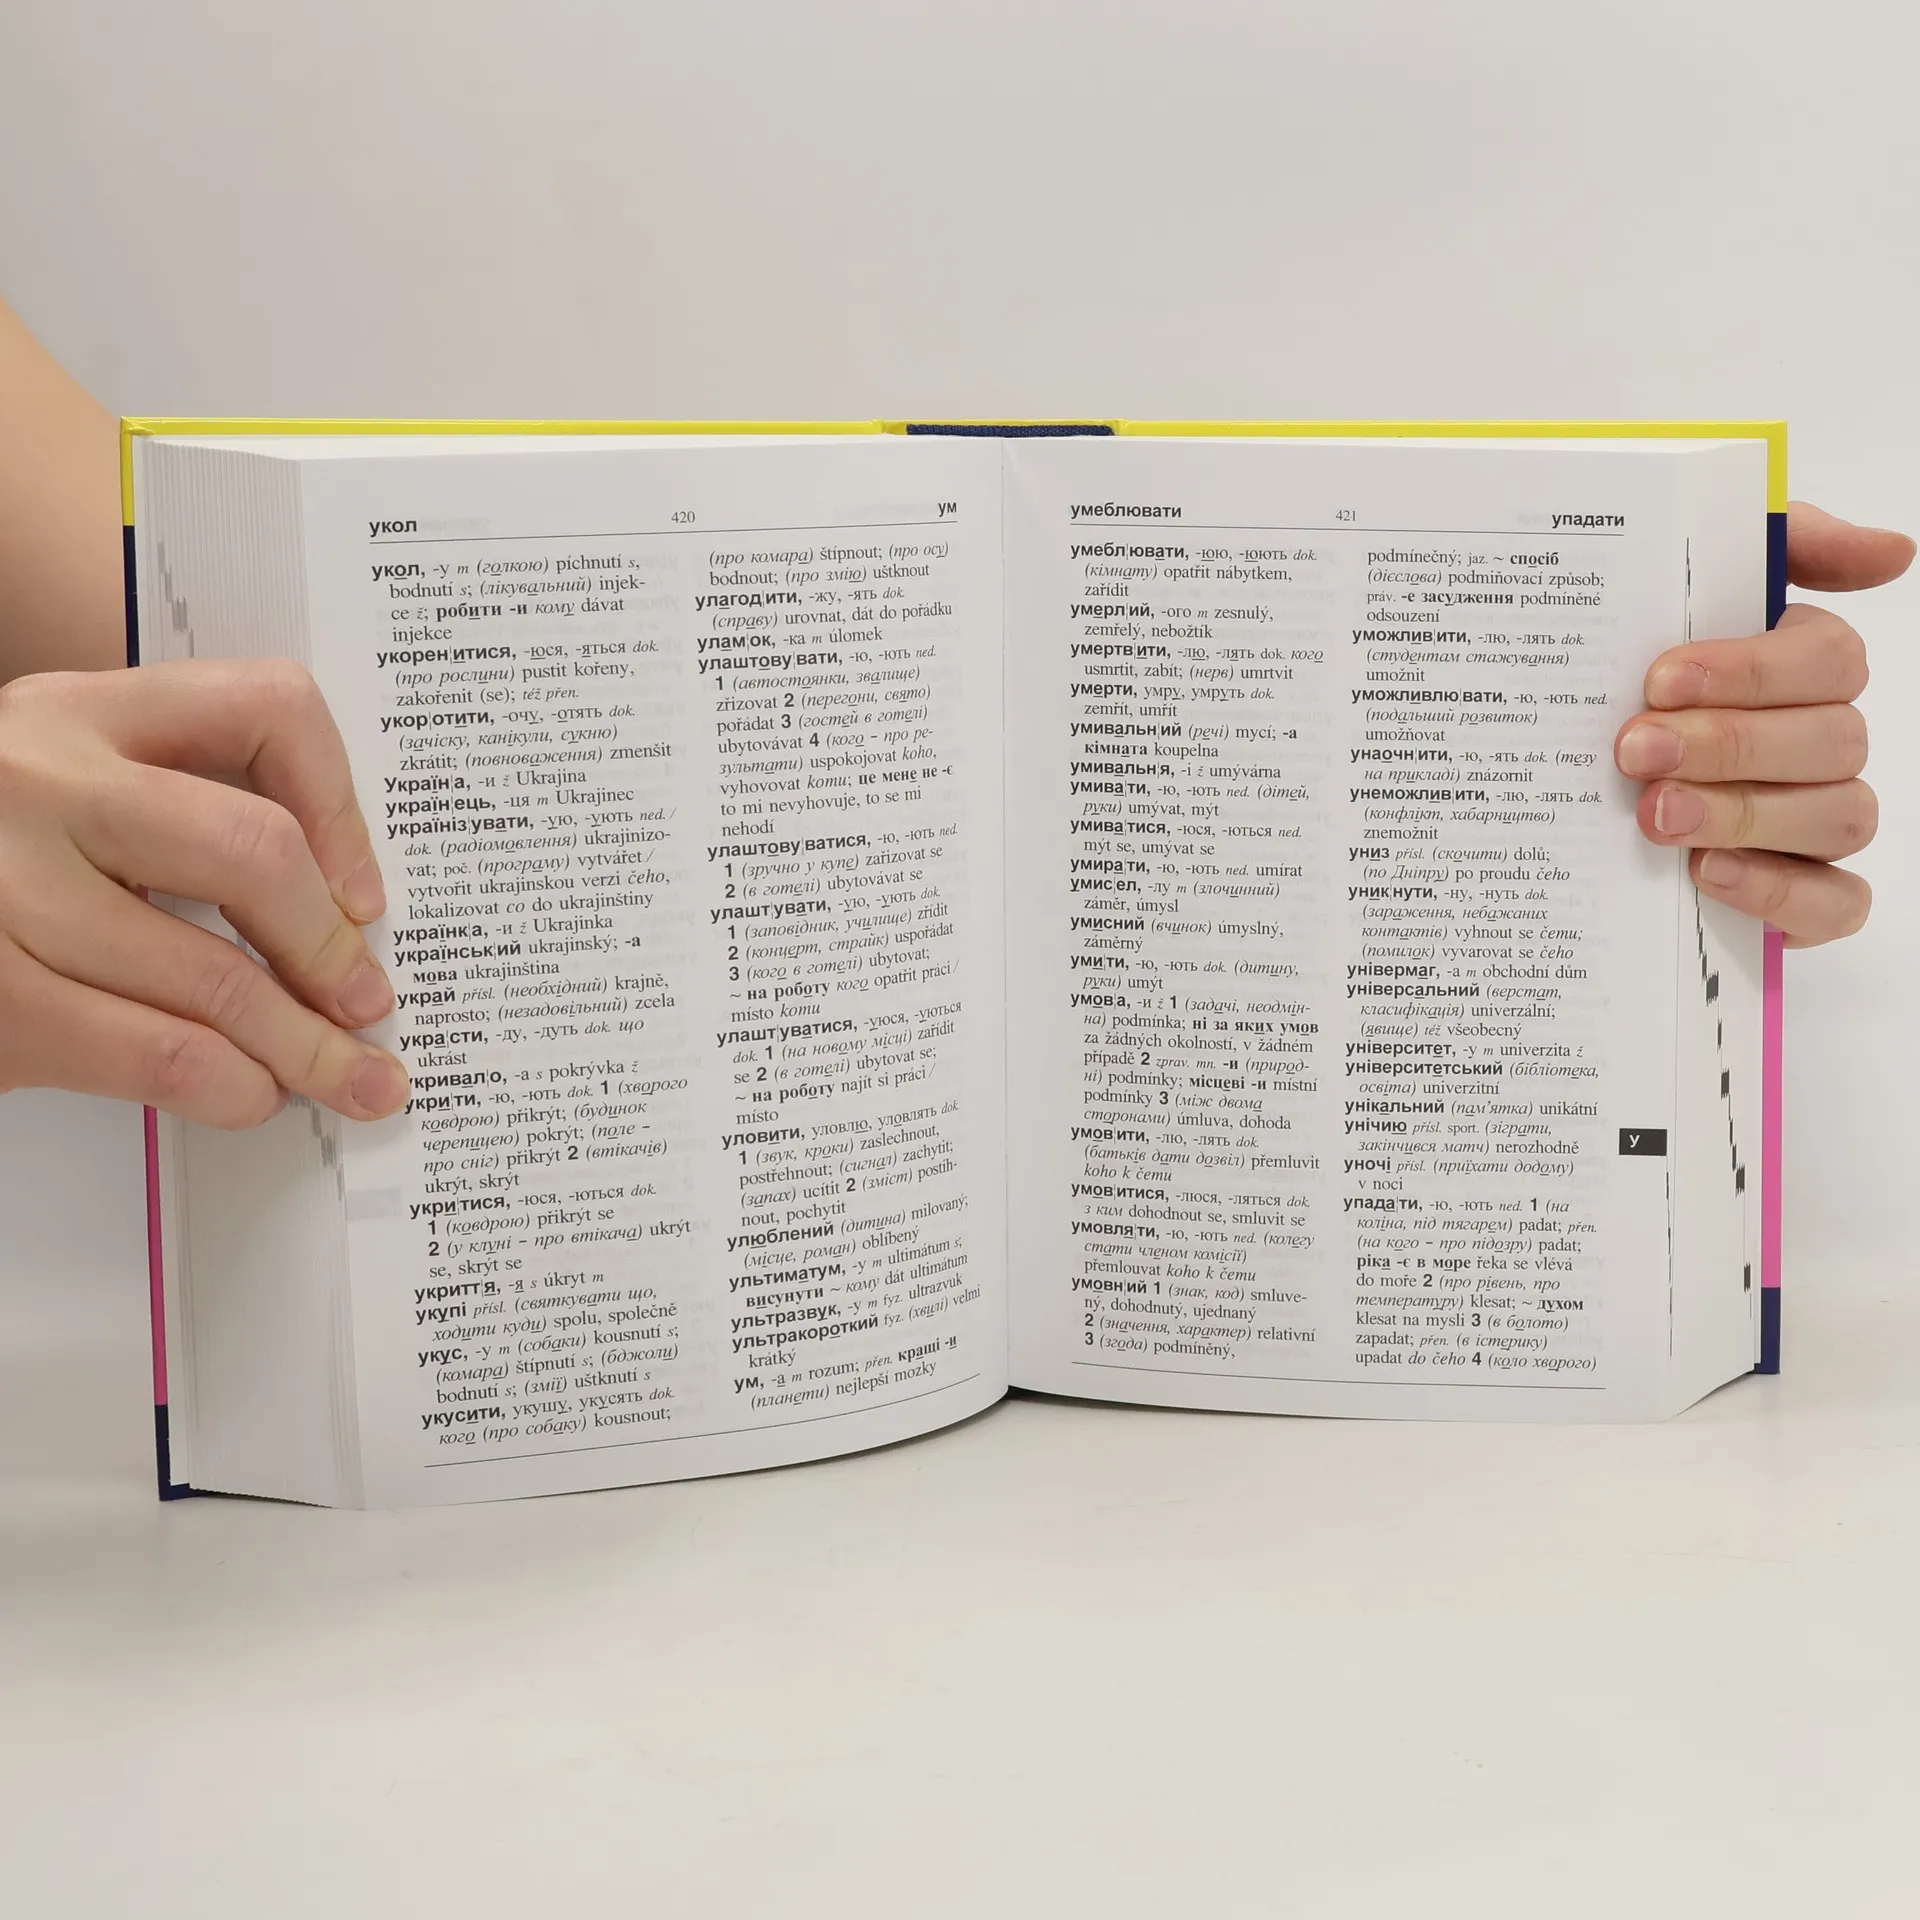 укол 420 ум
укол, -у m (голкою) píchnutí s,
bodnutí s; (лікувальний) injek-
ce ž; робити -и кому dávat
injekce
укорен|итися, -юся, -яться dok.
(про рослини) pustit kořeny,
zakořenit (se); též přen.
укор|отити, -очу, -отять dok.
(зачіску, канікули, сукню)
zkrátit; (повноваження) zmenšit
Україн|а, -и ž Ukrajina
україн|ець, -ця m Ukrajinec
україніз|увати, -ую, -ують ned./
dok. (радіомовлення) ukrajinizo-
vat; poč. (програму) vytvářet/
vytvořit ukrajinskou verzi čeho,
lokalizovat co do ukrajinštiny
українк|а, -и ž Ukrajinka
українськ|ий ukrajinský; -а
мова ukrajinština
украй přísl. (необхідний) krajně,
naprosto; (незадовільний) zcela
укра|сти, -ду, -дуть dok. що
ukrást
укривал|о, -а s pokrývka ž
укри|ти, -ю, -ють dok. 1 (хворого
ковдрою) přikrýt; (будинок
черепицею) pokrýt; (поле –
про сніг) přikrýt 2 (втікачів)
ukrýt, skrýt
укри|тися, -юся, -ються dok.
1 (ковдрою) přikrýt se
2 (у клуні – про втікача) ukrýt
se, skrýt se
укритт|я, -я s úkryt m
укупі přísl. (святкувати що,
ходити куди) spolu, společně
укус, -у m (собаки) kousnutí s;
(комара) štípnutí s; (бджоли)
bodnutí s; (змії) uštknutí s
укусити, укушу, укусять dok.
кого (про собаку) kousnout;
(про комара) štípnout; (про осу)
bodnout; (про змію) uštknout
улагод|ити, -жу, -ять dok.
(справу) urovnat, dát do pořádku
улам|ок, -ка m úlomek
улаштову|вати, -ю, -ють ned.
1 (автостоянки, звалище)
zřizovat 2 (перегони, свято)
pořádat 3 (гостей в готелі)
ubytovávat 4 (кого – про ре-
зультати) uspokojovat koho,
vyhovovat komu; це мене не -є
to mi nevyhovuje, to se mi
nehodí
улаштову|ватися, -ю, -ють ned.
1 (зручно у купе) zařizovat se
2 (в готелі) ubytovávat se
улашт|увати, -ую, -ують dok.
1 (заповідник, училище) zřídit
2 (концерт, страйк) uspořádat
3 (кого в готелі) ubytovat;
~ на роботу кого opatřit práci/
místo komu
улашт|уватися, -уюся, -уються
dok. 1 (на новому місці) zařídit
se 2 (в готелі) ubytovat se;
~ на роботу najít si práci/
místo
уловити, уловлю, уловлять dok.
1 (звук, кроки) zaslechnout,
postřehnout; (сигнал) zachytit;
(запах) ucítit 2 (зміст) postih-
nout, pochytit
улюблений (дитина) milovaný;
(місце, роман) oblíbený
ультиматум, -у m ultimátum s;
висунути ~ кому dát ultimátum
ультразвук, -у m fyz. ultrazvuk
ультракороткий fyz. (хвилі) velmi
krátký
ум, -а m rozum; přen. кращі -и
(планети) nejlepší mozky
умеблювати 421 упадати
умебл|ювати, -юю, -юють dok.
(кімнату) opatřit nábytkem,
zařídit
умерл|ий, -ого m zesnulý,
zemřelý, nebožtík
умертв|ити, -лю, -лять dok. кого
usmrtit, zabít; (нерв) umrtvit
умерти, умру, умруть dok.
zemřít, umřít
умивальн|ий (речі) mycí; -а
кімната koupelna
умивальн|я, -і ž umývárna
умива|ти, -ю, -ють ned. (дітей,
руки) umývat, mýt
умива|тися, -юся, -ються ned.
mýt se, umývat se
умира|ти, -ю, -ють ned. umírat
умис|ел, -лу m (злочинний)
záměr, úmysl
умисний (вчинок) úmyslný,
záměrný
уми|ти, -ю, -ють dok. (дитину,
руки) umýt
умов|а, -и ž 1 (задачі, неодмін-
на) podmínka; ні за яких умов
za žádných okolností, v žádném
případě 2 zprav. mn. -и (природ-
ні) podmínky; місцеві -и místní
podmínky 3 (між двома
сторонами) úmluva, dohoda
умов|ити, -лю, -лять dok.
(батьків дати дозвіл) přemluvit
koho k čemu
умов|итися, -люся, -ляться dok.
з ким dohodnout se, smluvit se
умовля|ти, -ю, -ють ned. (колегу
стати членом комісії)
přemlouvat koho k čemu
умовн|ий 1 (знак, код) smluve-
ný, dohodnutý, ujednaný
2 (значення, характер) relativní
3 (згода) podmíněný,
podmínečný; jaz. ~ спосіб
(дієслова) podmiňovací způsob;
práv. -е засудження podmíněné
odsouzení
уможлив|ити, -лю, -лять dok.
(студентам стажування)
umožnit
уможливлю|вати, -ю, -ють ned.
(подальший розвиток)
umožňovat
унаочн|ити, -ю, -ять dok. (тезу
на прикладі) znázornit
унеможлив|ити, -лю, -лять dok.
(конфлікт, хабарництво)
znemožnit
униз přísl. (скочити) dolů;
(по Дніпру) po proudu čeho
уник|нути, -ну, -нуть dok.
(зараження, небажаних
контактів) vyhnout se čemu;
(помилок) vyvarovat se čeho
універмаг, -а m obchodní dům
універсальний (верстат,
класифікація) univerzální;
(явище) též všeobecný
університет, -у m univerzita ž
університетський (бібліотека,
освіта) univerzitní
унікальний (пам'ятка) unikátní
унічию přísl. sport. (зіграти,
закінчився матч) nerozhodně
уночі přísl. (приїхати додому)
v noci
упада|ти, -ю, -ють ned. 1 (на
коліна, під тягарем) padat; přen.
(на кого – про підозру) padat;
ріка -є в море řeka se vlévá
do moře 2 (про рівень, про
температуру) klesat; ~ духом
klesat na mysli 3 (в болото)
zapadat; přen. (в істерику)
upadat do čeho 4 (коло хворого)
У